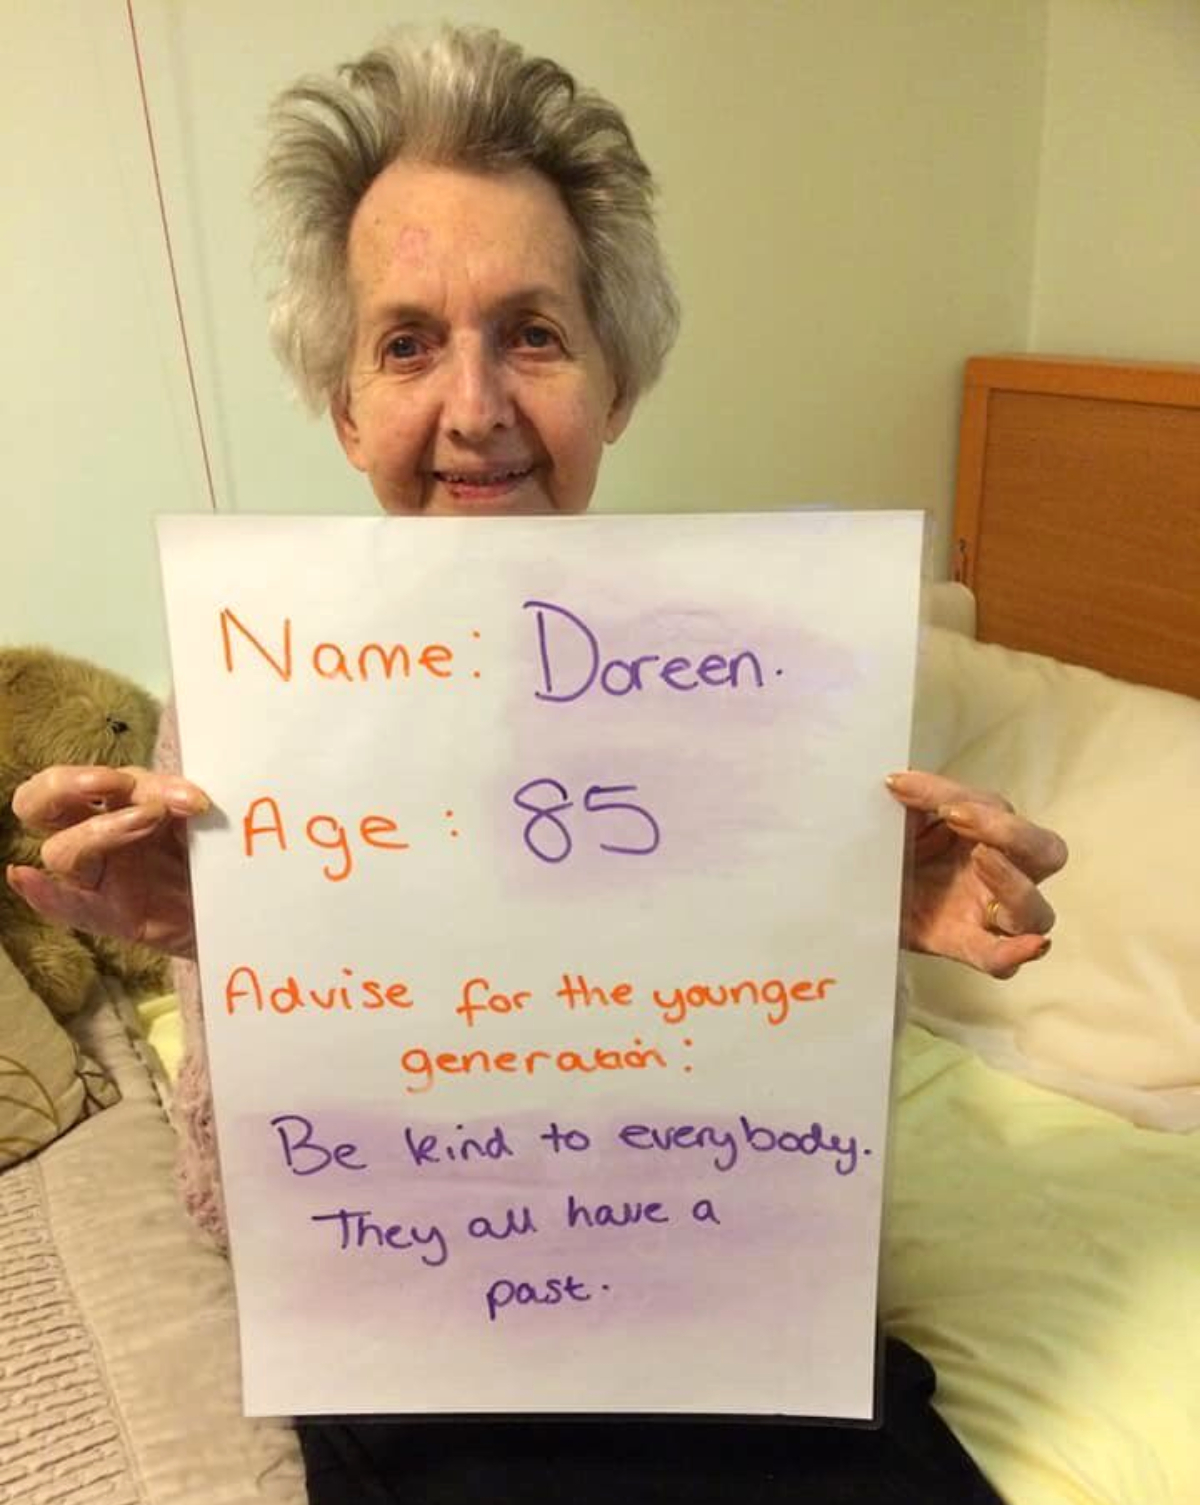 Name: Doreen.
Age: 85
Advise for the younger
generation:
Be kind to everybody.
They all have a
past.